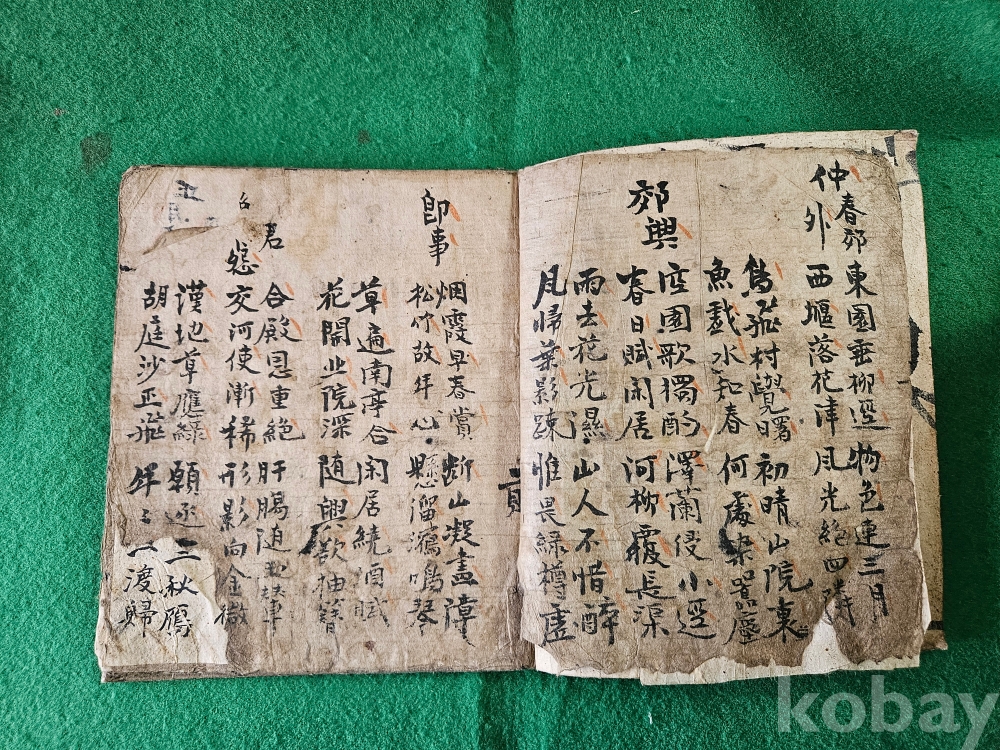 仲春郊外
東園垂柳逕 物色連三月
西堰落花津 風光絕四隣
鳥飛村覺曙 初晴山院裏
魚戲水知春 何處染嚣塵
郊興
空園歌獨酌 澤蘭侵小逕
春日賦閑居 河柳覆長渠
雨去花光濕 山人不惜醉
風歸葉影踈 惟畏綠樽虛
即事
烟霞早春賞 斷山凝畫障
松竹故年心 懸溜瀉鳴琴
草遍南亭合 閑居繞酒賦
花開北院深 隨興欲抽簪
君怨
合殿恩重絕 肝腸随玉輦
交河使漸稀 形影向金微
漢地草應綠 願逐三秋鴈
胡庭沙正飛 年々一渡歸
kobay